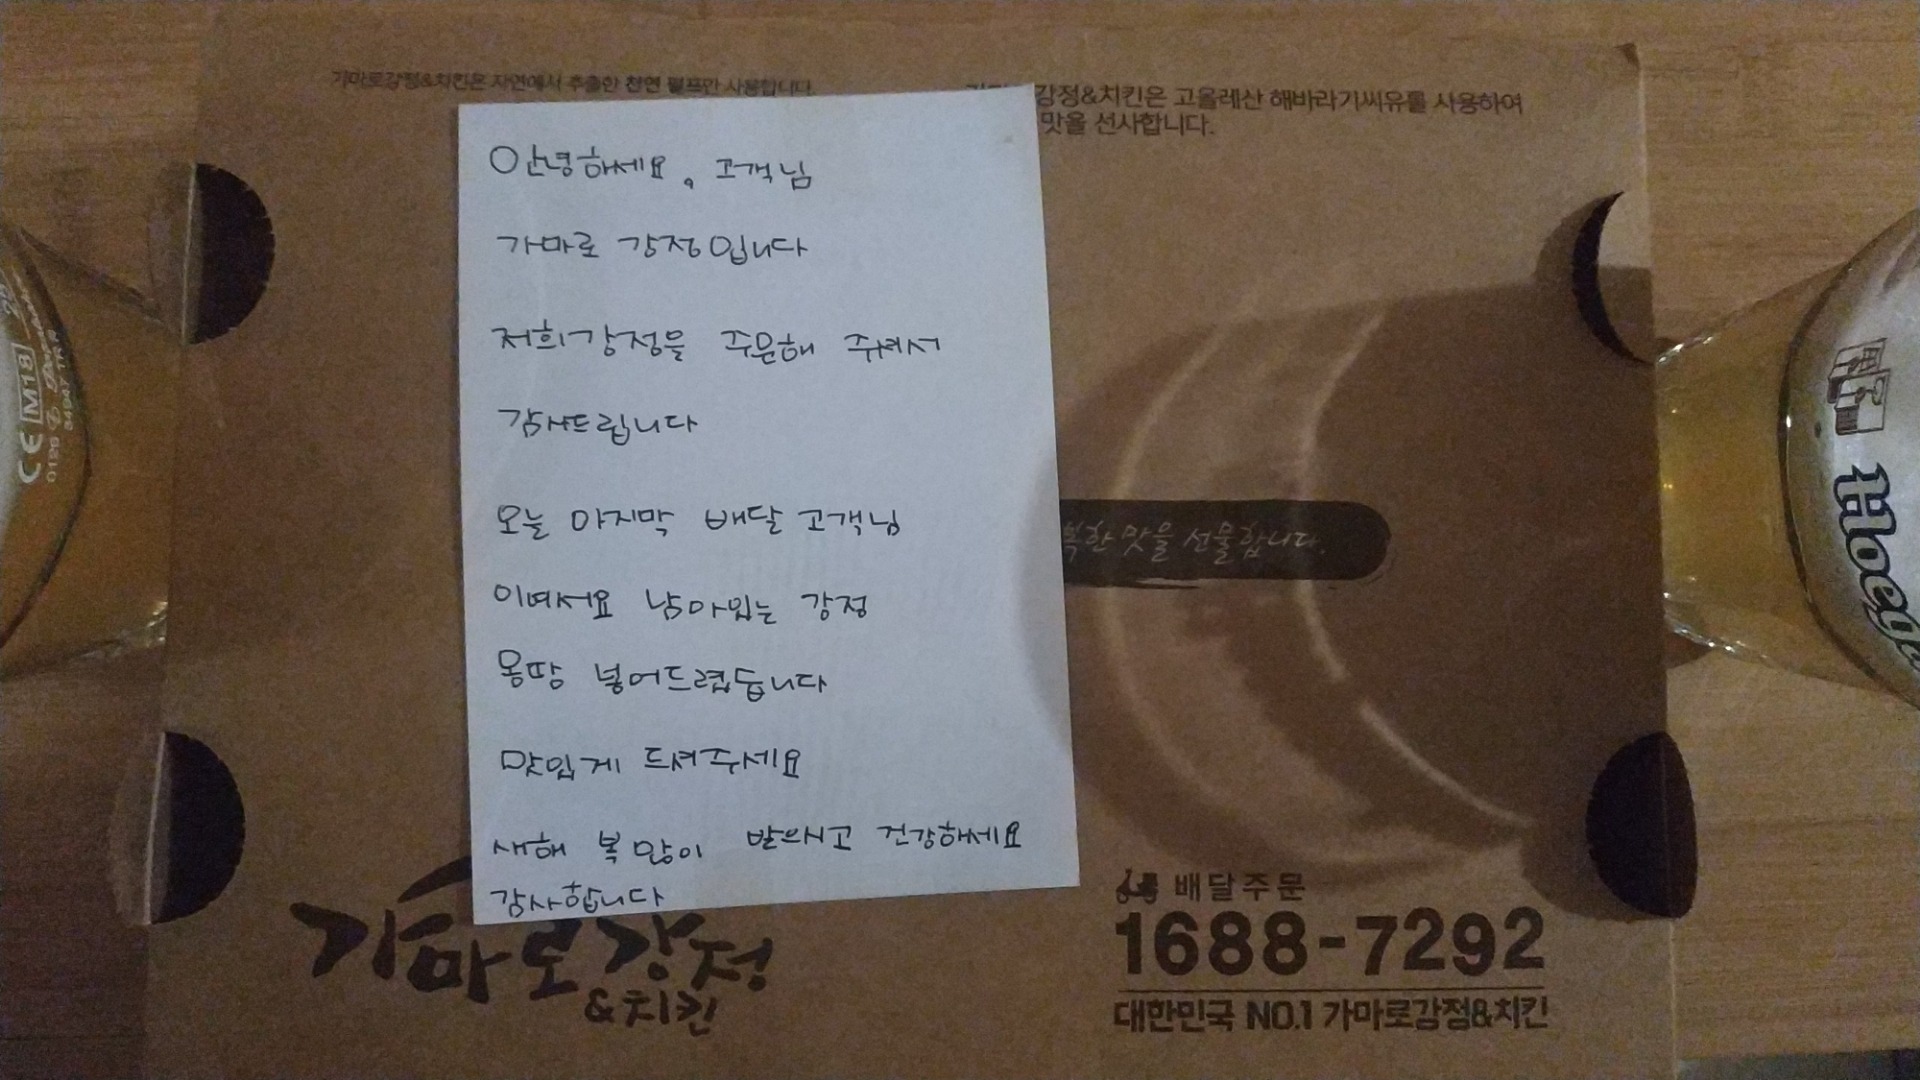 가마로강정&치킨은 자연에서 추출한 천연 펄프만 사용합니다.
강정&치킨은 고올레산 해바라기씨유를 사용하여
맛을 선사합니다.
안녕하세요. 고객님
가마로 강정입니다
저희강정을 주문해 주셔서
감사드립니다
오늘 마지막 배달 고객님
이여서요 남아있는 강정
몽땅 넣어드렸습니다
맛있게 드셔주세요
새해 복 많이 받으시고 건강해세요
감사합니다
복한 맛을 선물합니다.
가마로강정
&치킨
배달주문
1688-7292
대한민국 NO.1 가마로강정&치킨
CE M18
0126
Hoega